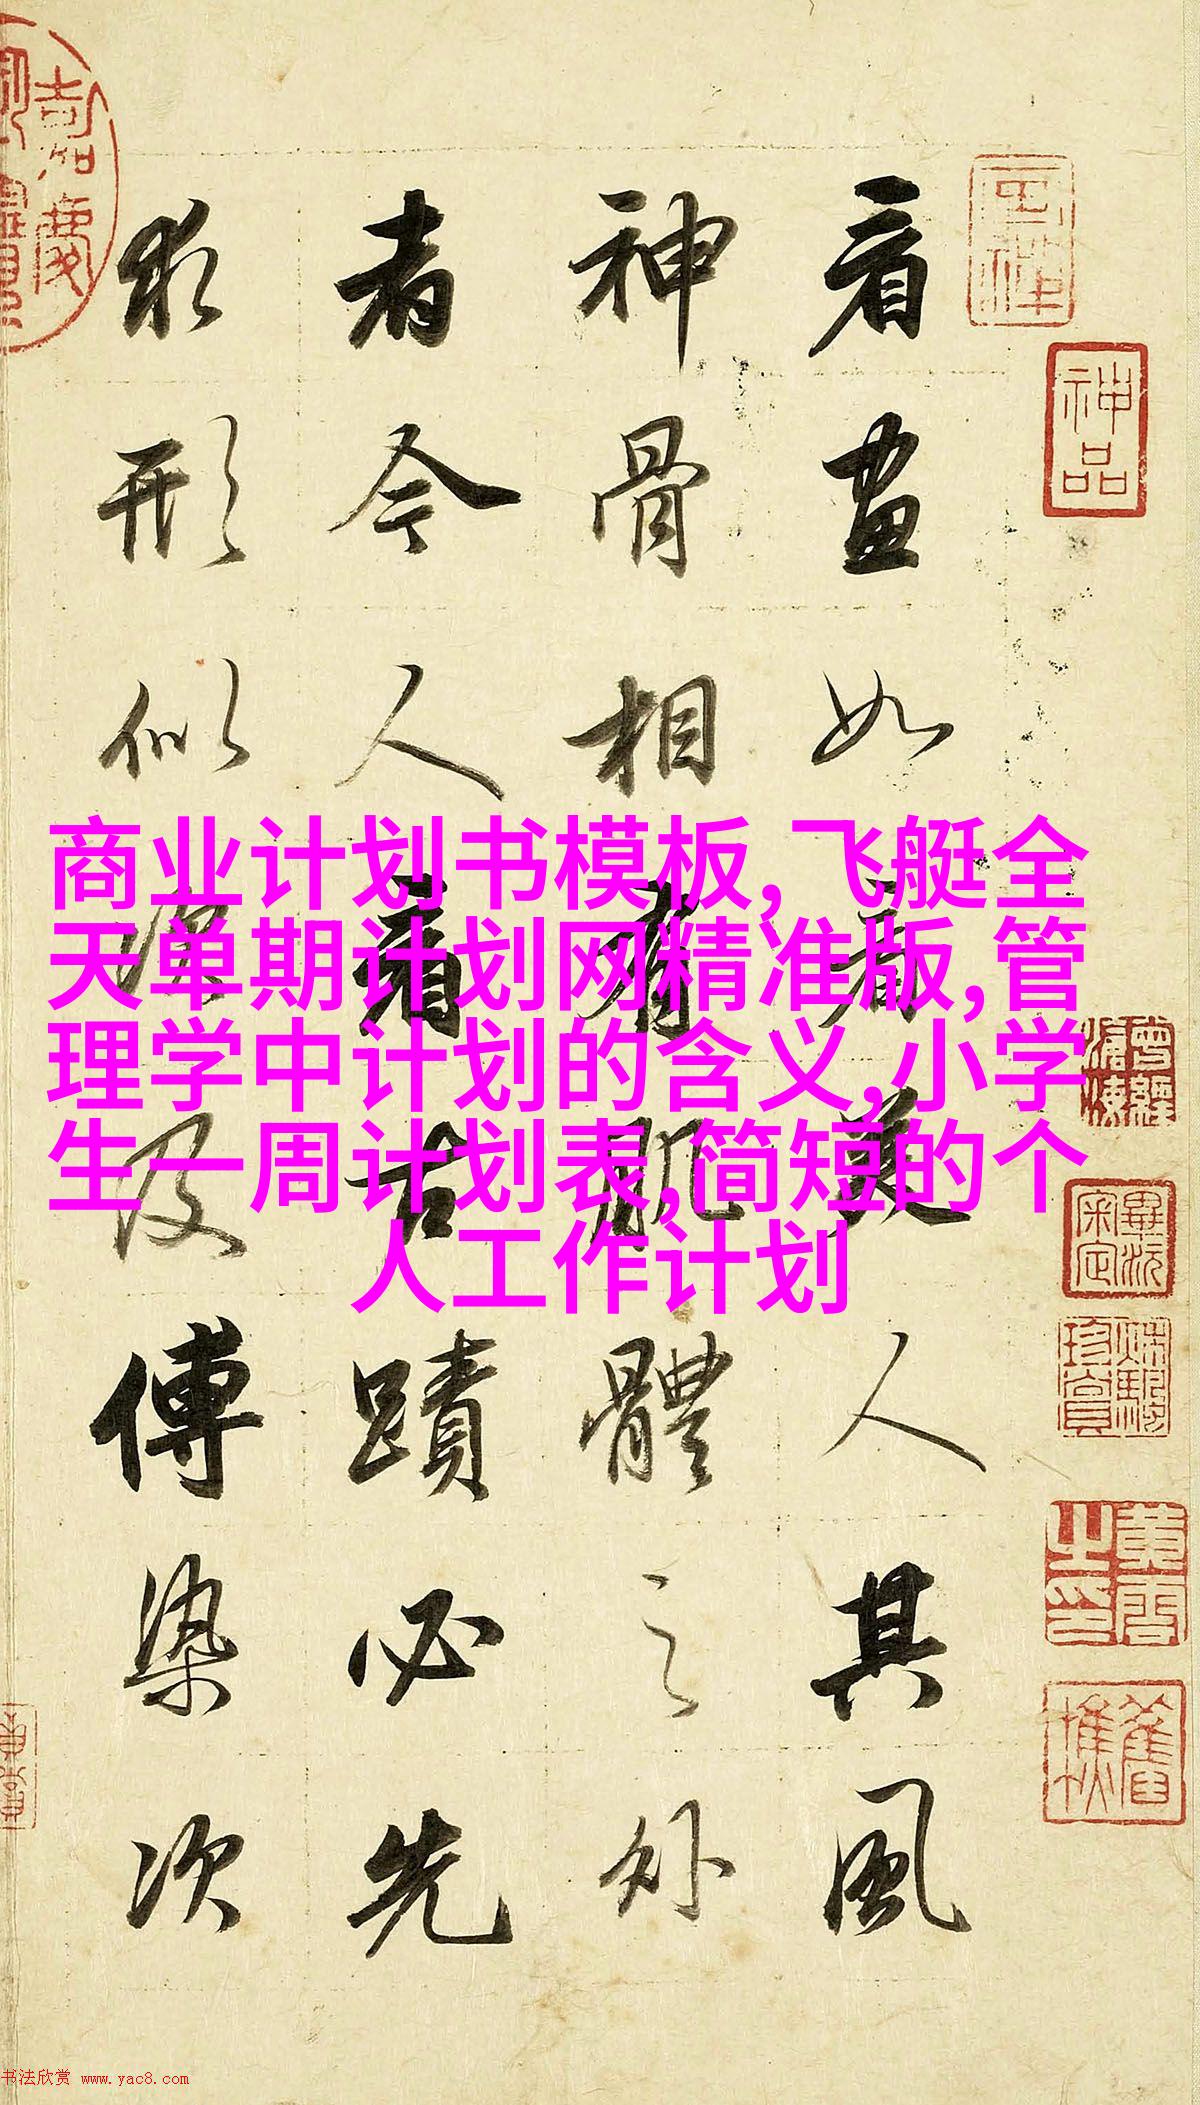 看畫如看美人其風
神骨相有肌體之外
者今人看古蹟必先
求形似次及傅染次
神品
商业计划书模板,飞艇全
天单期计划网精准版,管
理学中计划的含义,小学
生一周计划表,简短的个
人工作计划
书法欣赏 www.yac8.com